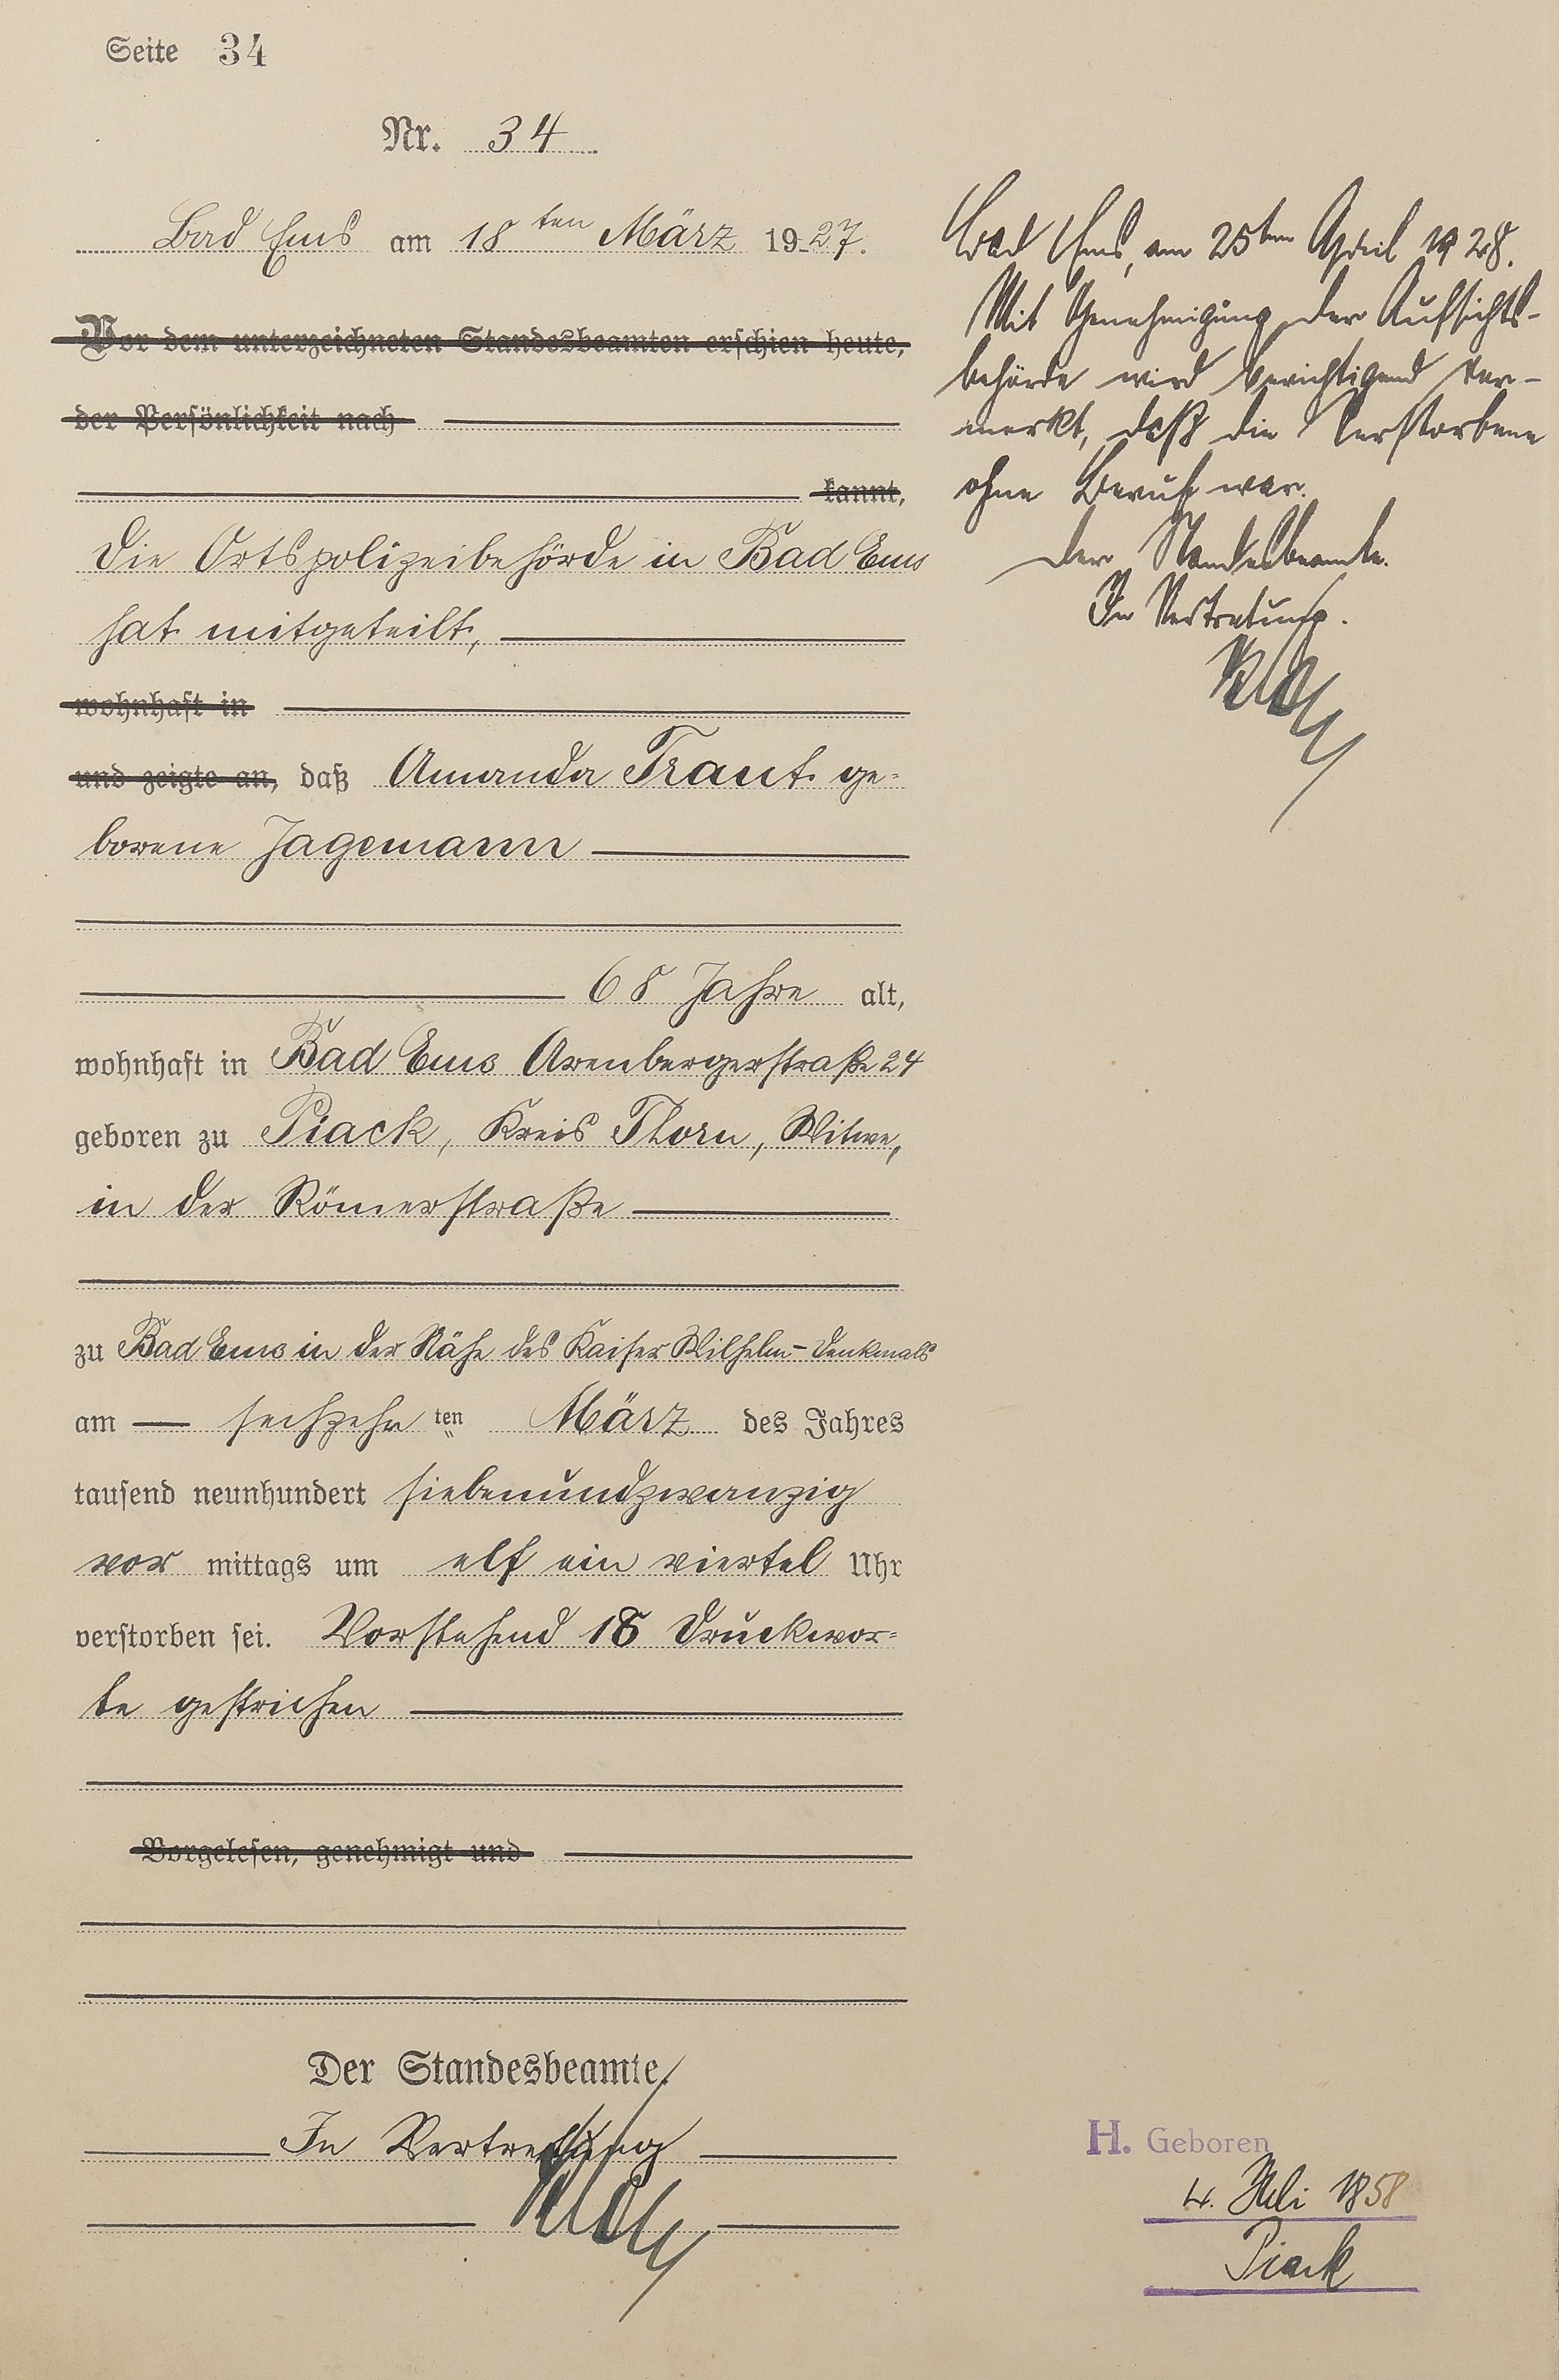 Seite 34
Nr. 34
Bad Ems am 18ten März 1927.
Vor dem unterzeichneten Standesbeamten erschien heute,
der Persönlichkeit nach
kannt,
Die Ortspolizeibehörde in Bad Ems
hat mitgeteilt,
wohnhaft in
und zeigte an, daß Amanda Traut ge-
borene Jagemann
68 Jahre alt,
wohnhaft in Bad Ems Arenbergerstraße 24
geboren zu Piack, Kreis Thorn, Witwe,
in der Römerstraße
zu Bad Ems in der Nähe des Kaiser Wilhelm-Denkmals
am sechzehnten März des Jahres
tausend neunhundert siebenundzwanzig
vor mittags um elf ein viertel Uhr
verstorben sei. Vorstehend 18 Druckwor-
te gestrichen
Vorgelesen, genehmigt und
Der Standesbeamte.
In Vertretung
Bad Ems, am 25ten April 1928.
Mit Genehmigung der Aufsichts-
behörde wird berichtigend ver-
merkt, daß die Verstorbene
ohne Beruf war.
Der Standesbeamte.
In Vertretung.
H. Geboren
4. Juli 1858
Piack